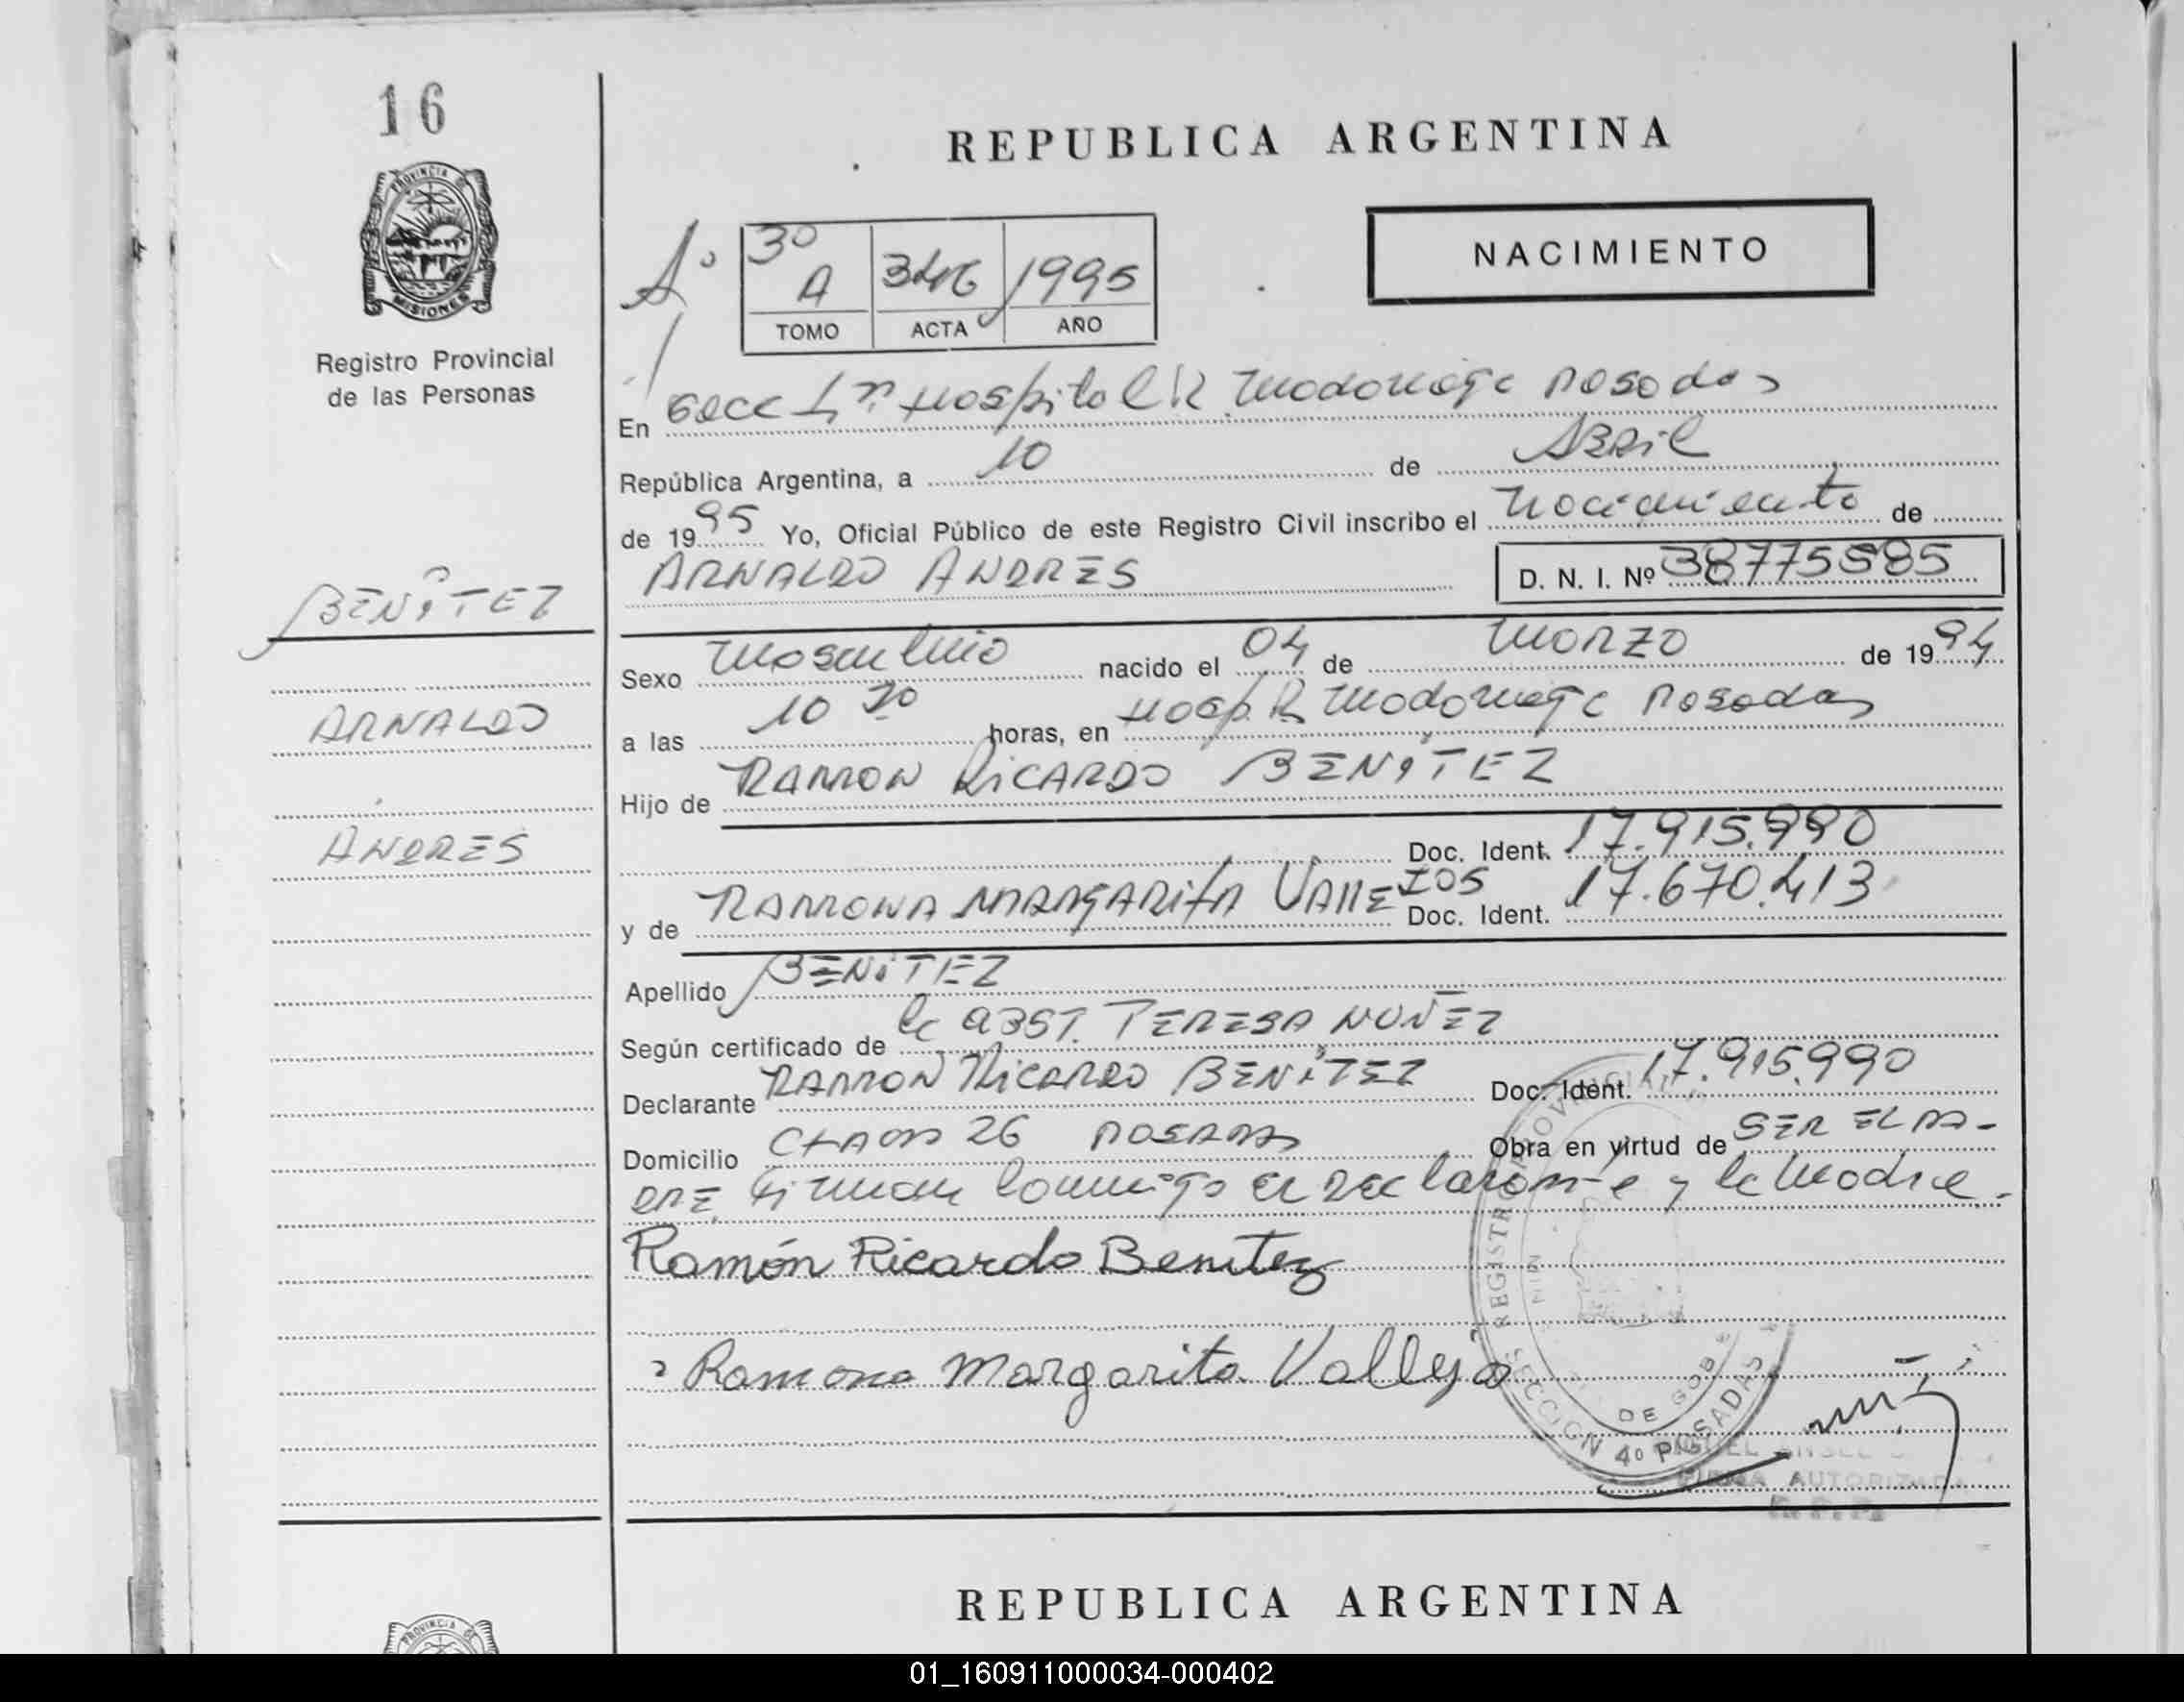 16
PROVINCIA DE
MISIONES
Registro Provincial
de las Personas
REPUBLICA ARGENTINA
NACIMIENTO
Aº
3º
A 346 1995
TOMO ACTA AÑO
En Secc Hospital R Madariaga Posadas
República Argentina, a 10 de Abril
de 1995 Yo, Oficial Público de este Registro Civil inscribo el Nacimiento de
ARNALDO ANDRES D. N. I. Nº 38775585
BENITEZ
ARNALDO
ANDRES
Sexo Masculino nacido el 04 de Marzo de 1994
a las 10 horas, en Hosp. R Madariaga Posadas
Hijo de RAMON RICARDO BENITEZ
Doc. Ident. 17.915.990
y de RAMONA MARGARITA VALLEJOS Doc. Ident. 17.670.413
Apellido BENITEZ
Según certificado de la OBST. TERESA NUÑEZ
Declarante RAMON RICARDO BENITEZ Doc. Ident. 17.915.990
Domicilio CHACRA 26 POSADAS Obra en virtud de SER EL PA-
DRE. Firman conmigo el declarante y la Madre.
Ramón Ricardo Benitez
Ramona Margarita Vallejo
REGISTRO PROVINCIAL
SECCION 4º POSADAS
DE GOB
FIRMA AUTORIZADA
R. P. P.
REPUBLICA ARGENTINA
PROVINCIA DE
01_160911000034-000402